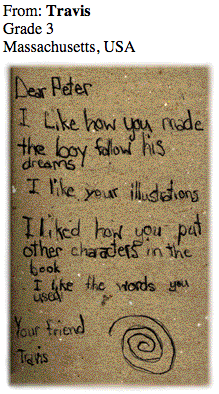 From: Travis
Grade 3
Massachusetts, USA
Dear Peter
I Like how you made
the boy follow his
dreams
I like your illustrations
I liked how you put
other characters in the
book
I like the words you
used
Your friend
Travis